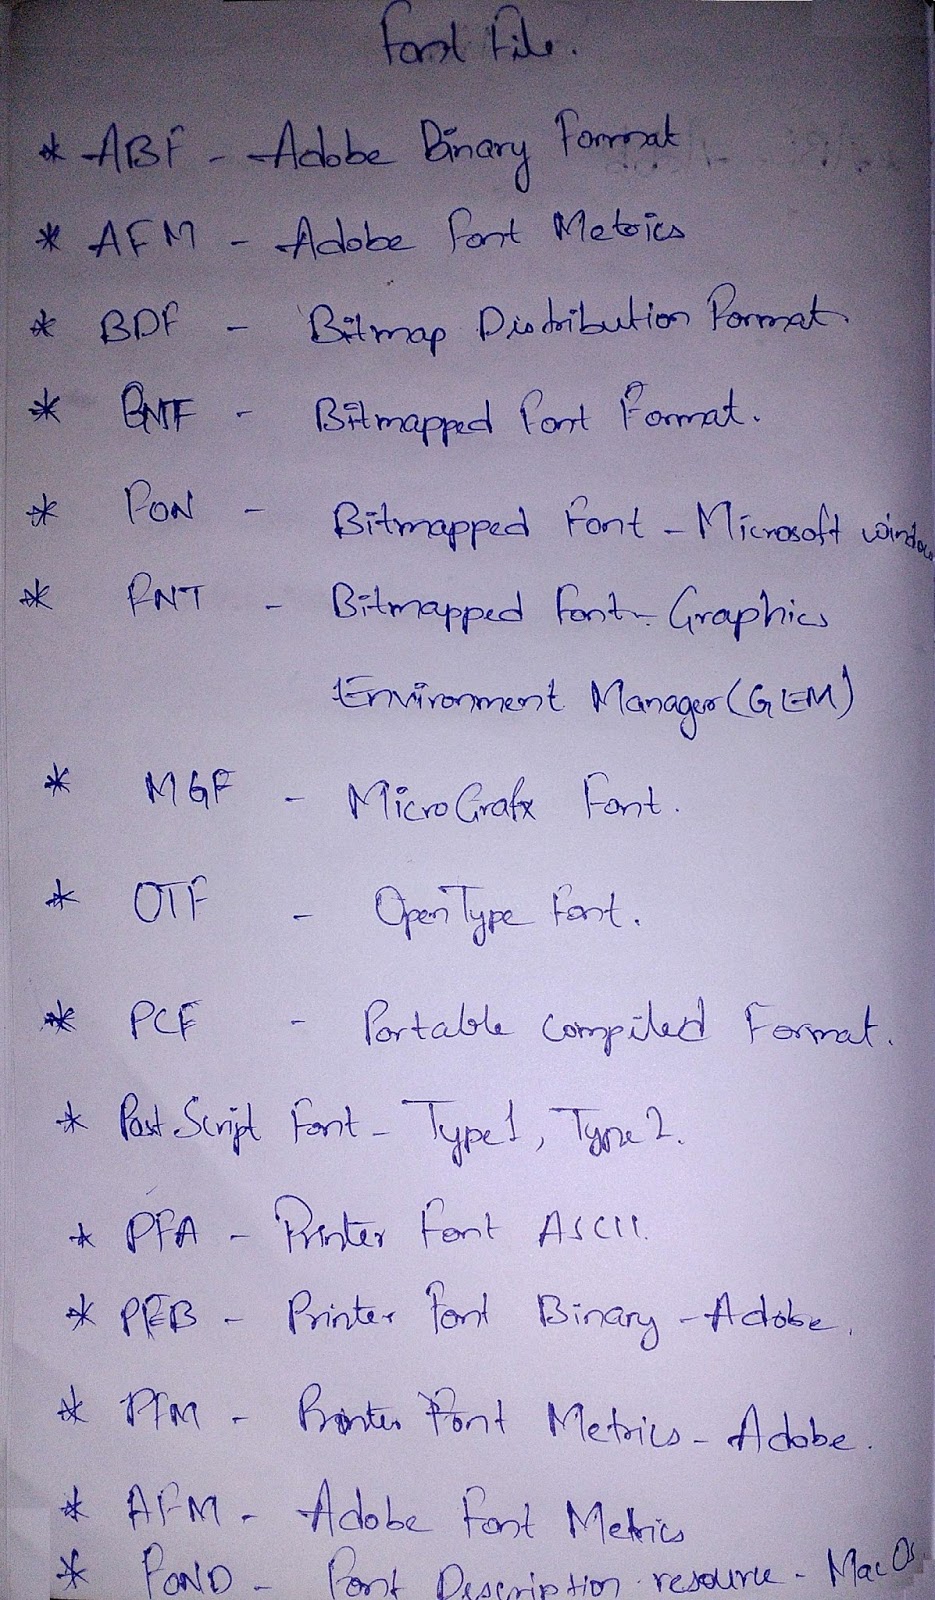 Font File.
* ABF - Adobe Binary Format
* AFM - Adobe Font Metrics
* BDF - Bitmap Distribution Format.
* BMTF - Bitmapped Font Format.
* FON - Bitmapped Font - Microsoft Window
* FNT - Bitmapped Font - Graphics
Environment Manager (GEM)
* MGF - MicroGrafx Font.
* OTF - OpenType Font.
* PCF - Portable Compiled Format.
* PostScript Font - Type 1, Type 2.
* PFA - Printer Font ASCII.
* PFB - Printer Font Binary - Adobe.
* PFM - Printer Font Metrics - Adobe.
* AFM - Adobe Font Metrics
* FOND - Font Description resource - Mac OS